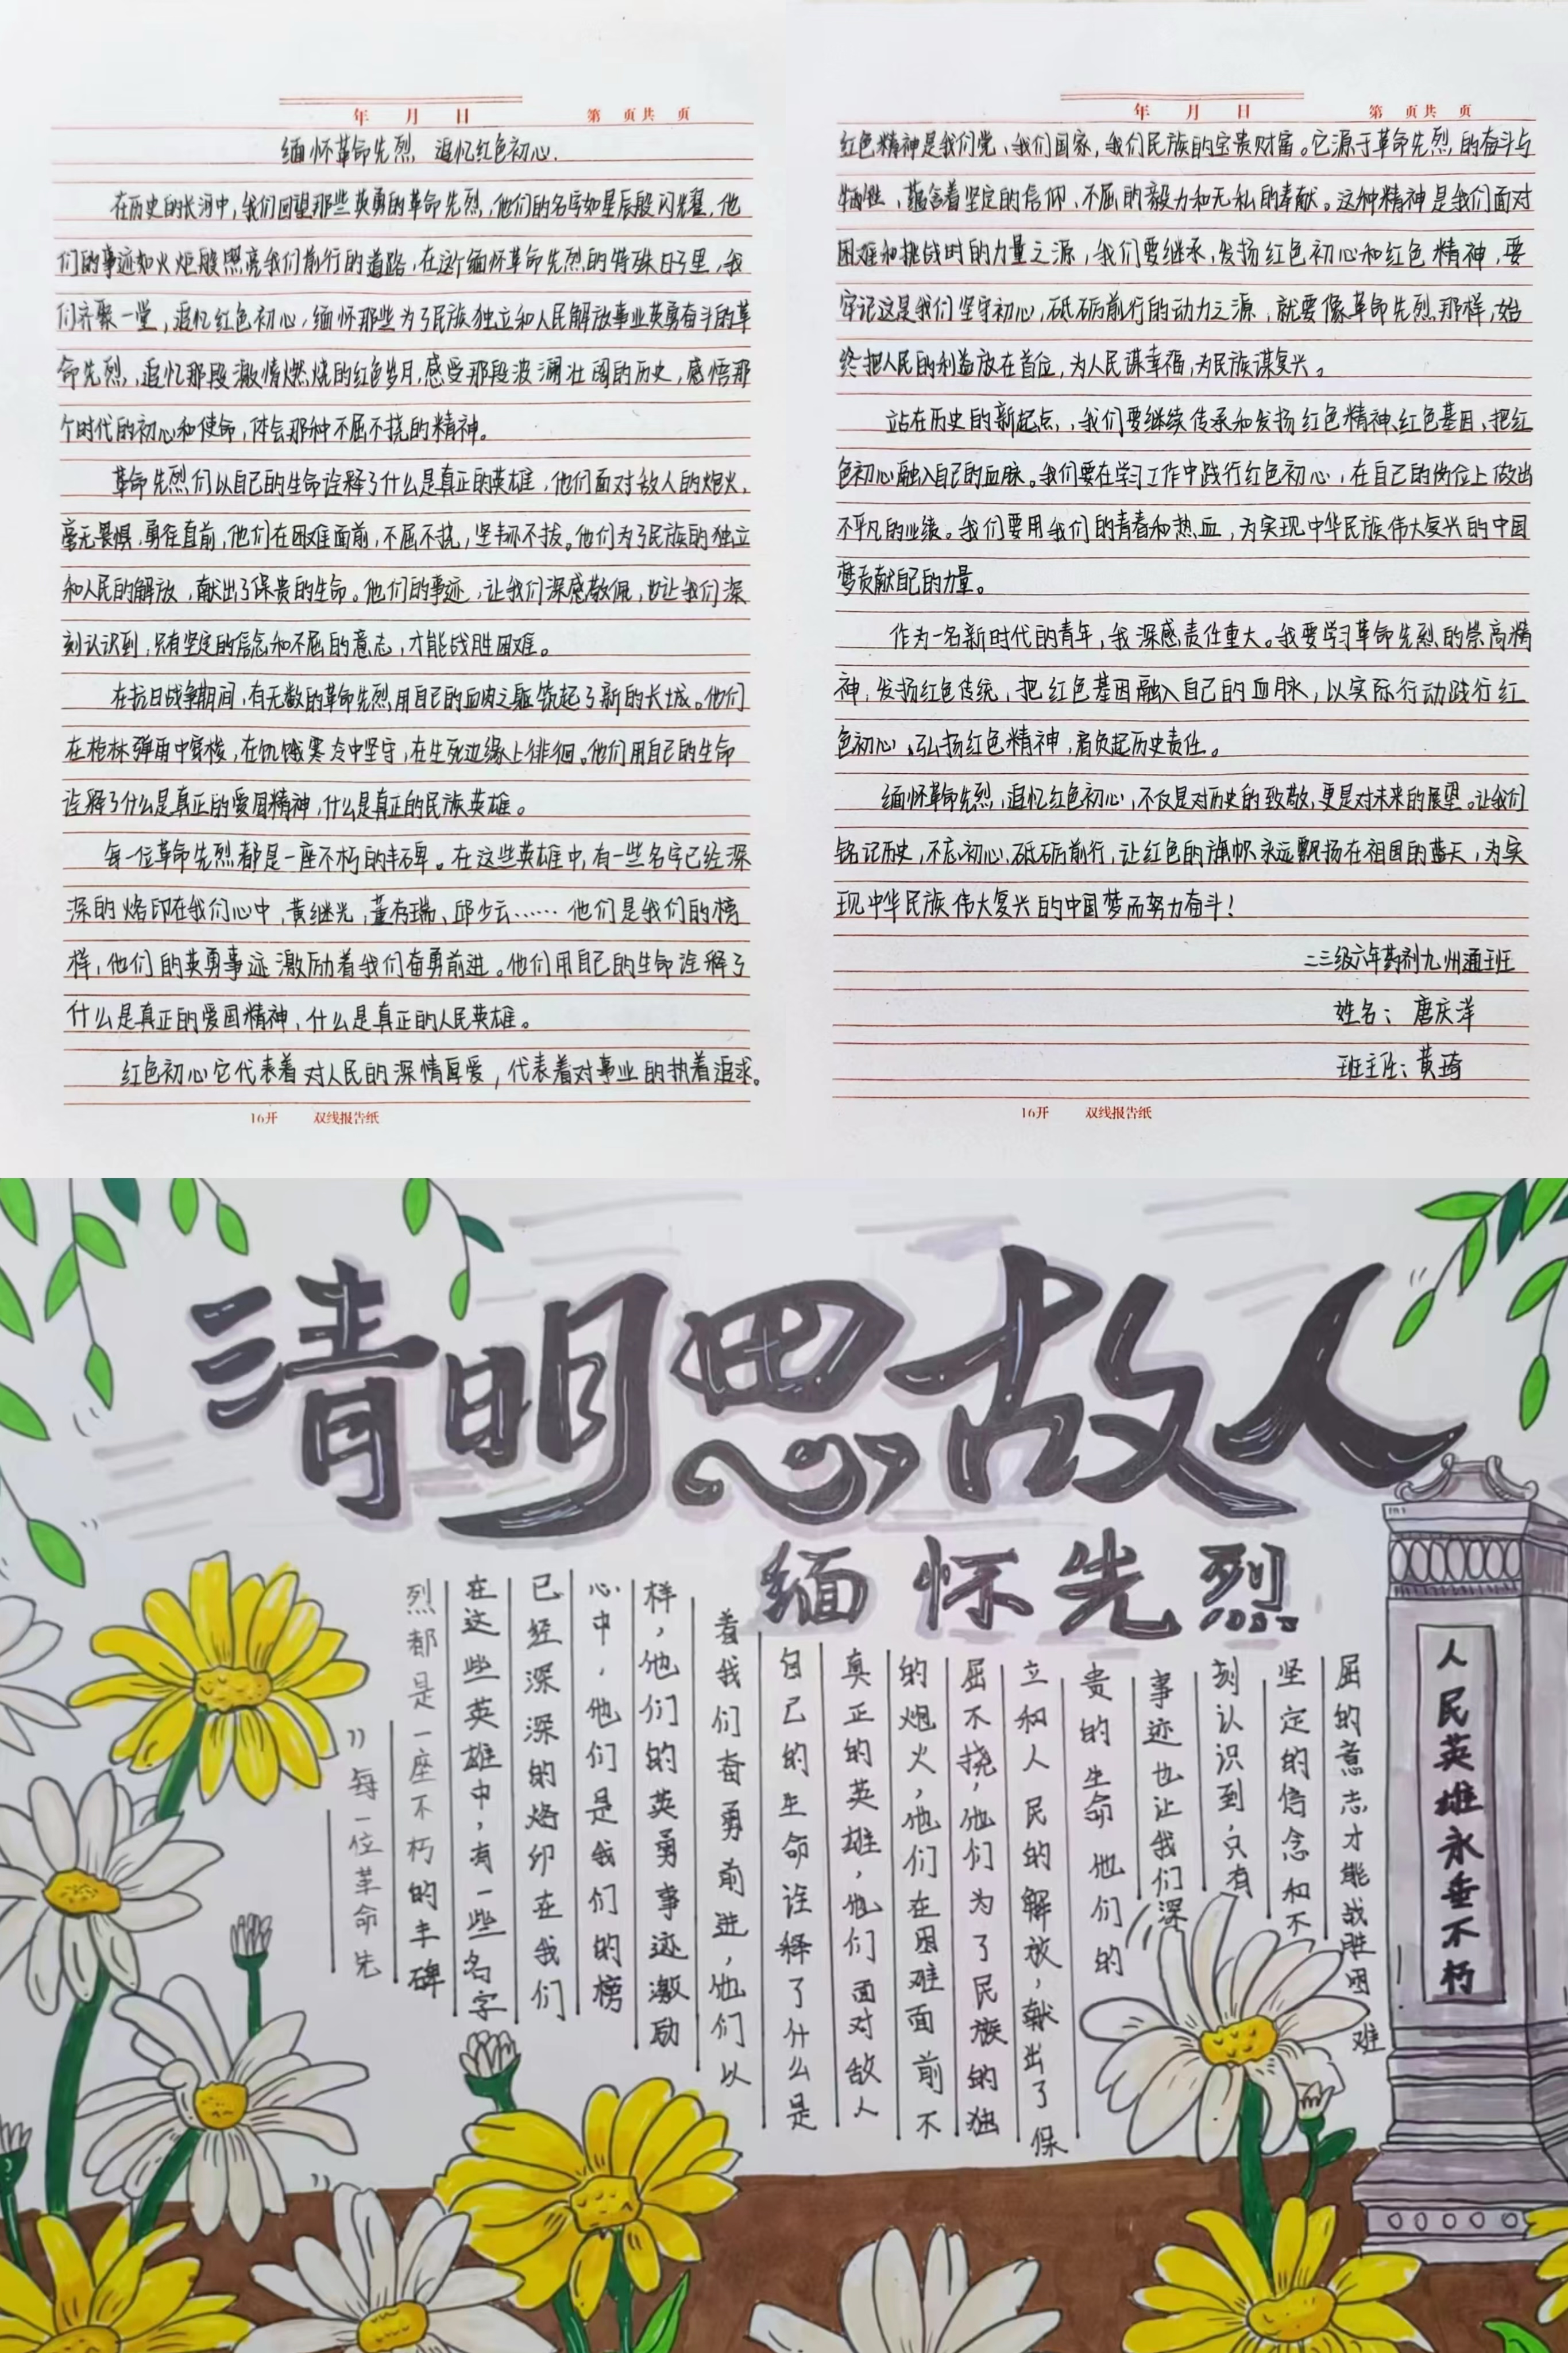 年 月 日 第 页共 页
缅怀革命先烈 追忆红色初心.
在历史的长河中,我们回望那些英勇的革命先烈,他们的名字如星辰般闪耀,他
们的事迹如火炬般照亮我们前行的道路,在这个缅怀革命先烈的特殊日子里,我
们齐聚一堂,追忆红色初心,缅怀那些为了民族独立和人民解放事业英勇奋斗的革
命先烈,追忆那段激情燃烧的红色岁月,感受那段波澜壮阔的历史,感悟那
个时代的初心和使命,体会那种不屈不挠的精神。
革命先烈们以自己的生命诠释了什么是真正的英雄,他们面对敌人的炮火,
毫无畏惧,勇往直前,他们在困难面前,不屈不挠,坚韧不拔。他们为了民族的独立
和人民的解放,献出了保贵的生命。他们的事迹,让我们深感敬佩,也让我们深
刻认识到,只有坚定的信念和不屈的意志,才能战胜困难。
在抗日战争期间,有无数的革命先烈用自己的血肉之躯筑起了新的长城。他们
在枪林弹雨中穿梭,在饥饿寒冷中坚守,在生死边缘上徘徊。他们用自己的生命
诠释了什么是真正的爱国精神,什么是真正的民族英雄。
每一位革命先烈都是一座不朽的丰碑。在这些英雄中,有一些名字已经深
深的烙印在我们心中,黄继光,董存瑞、邱少云……他们是我们的榜
样,他们的英勇事迹激励着我们奋勇前进。他们用自己的生命诠释了
什么是真正的爱国精神,什么是真正的人民英雄。
红色初心它代表着对人民的深情厚爱,代表着对事业的执着追求。
16开 双线报告纸
年 月 日 第 页共 页
红色精神是我们党、我们国家,我们民族的宝贵财富。它源于革命先烈的奋斗与
牺牲、蕴含着坚定的信仰、不屈的毅力和无私的奉献。这种精神是我们面对
困难和挑战时的力量之源,我们要继承,发扬红色初心和红色精神,要
牢记这是我们坚守初心,砥砺前行的动力之源,就要像革命先烈那样,始
终把人民的利益放在首位,为人民谋幸福,为民族谋复兴。
站在历史的新起点,,我们要继续传承和发扬红色精神、红色基因、把红
色初心融入自己的血脉。我们要在学习工作中践行红色初心,在自己的岗位上做出
不平凡的业绩。我们要用我们的青春和热血,为实现中华民族伟大复兴的中国
梦贡献自己的力量。
作为一名新时代的青年,我深感责任重大。我要学习革命先烈的崇高精
神,发扬红色传统,把红色基因融入自己的血脉,以实际行动践行红
色初心、弘扬红色精神,肩负起历史责任。
缅怀革命先烈,追忆红色初心,不仅是对历史的致敬,更是对未来的展望。让我们
铭记历史,不忘初心,砥砺前行,让红色的旗帜永远飘扬在祖国的蓝天,为实
现中华民族伟大复兴的中国梦而努力奋斗!
二三级六年药剂九州通班
姓名:唐庆洋
班主任:黄琦
16开 双线报告纸
清明思故人
缅怀先烈
每一位革命先
烈都是一座不朽的丰碑
在这些英雄中,有一些名字
已经深深的烙印在我们
心中,他们是我们的榜
样,他们的英勇事迹激励
着我们奋勇前进,他们以
自己的生命诠释了什么是
真正的英雄,他们面对敌人
的炮火,他们在困难面前不
屈不挠,他们为了民族的独
立和人民的解放,献出了保
贵的生命 他们的
事迹也让我们深
刻认识到,只有
坚定的信念和不
屈的意志才能战胜困难
人民英雄永垂不朽